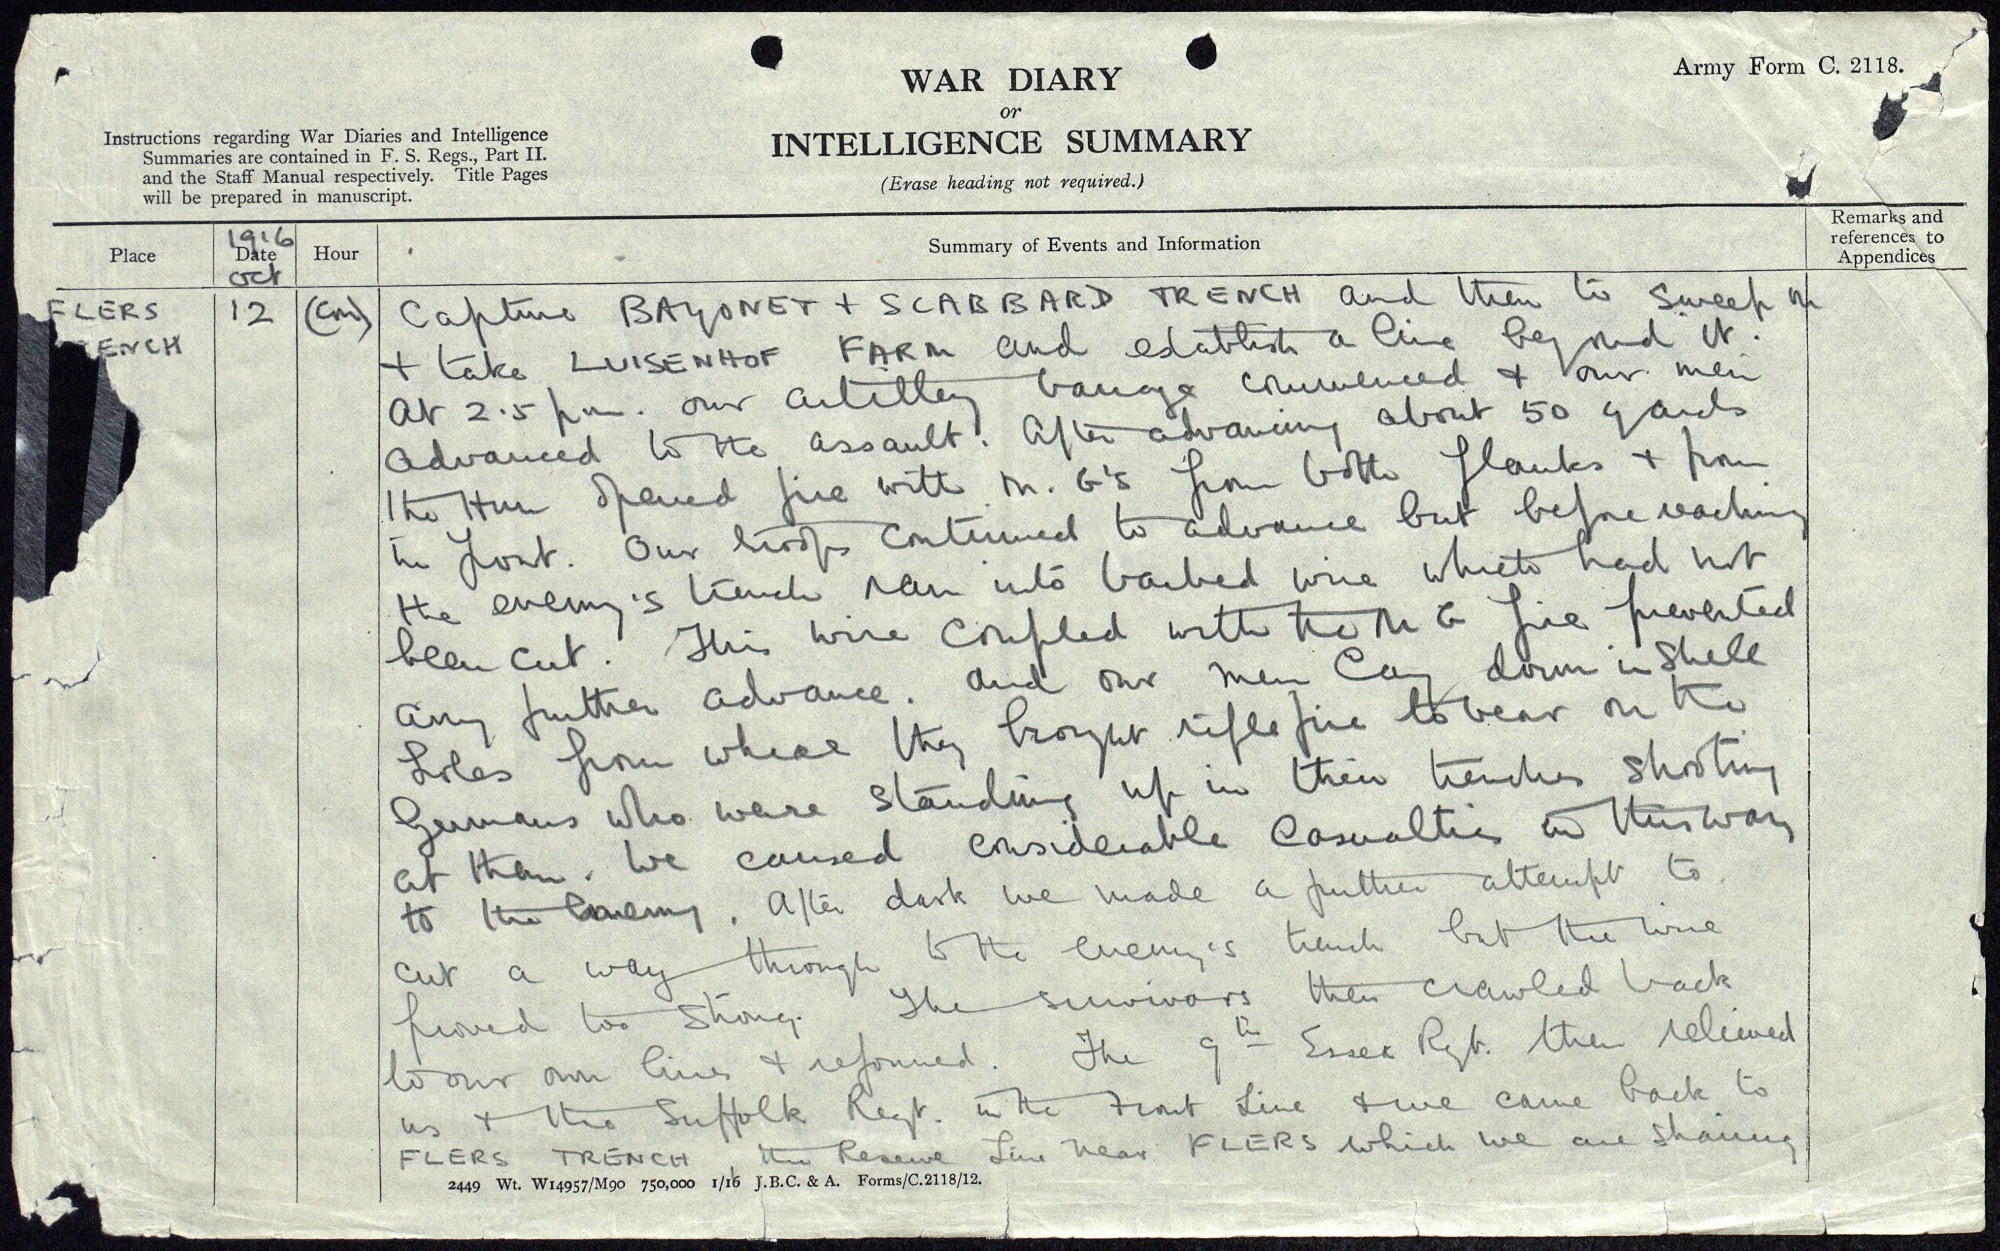 Army Form C. 2118.
WAR DIARY
or
INTELLIGENCE SUMMARY
(Erase heading not required.)
Instructions regarding War Diaries and Intelligence
Summaries are contained in F. S. Regs., Part II.
and the Staff Manual respectively. Title Pages
will be prepared in manuscript.
Place
1916
Date
Oct
Hour
Summary of Events and Information
Remarks and
references to
Appendices
FLERS
ENCH
12
(Con)
Capture BAYONET + SCABBARD TRENCH and then to sweep on
+ take LUISENHOF FARM and establish a line beyond it.
At 2.5 p.m. our artillery barrage commenced + our men
advanced to the assault. After advancing about 50 yards
the Hun opened fire with M.G's from both flanks + from
in front. Our troops continued to advance but before reaching
the enemy's trench ran into barbed wire which had not
been cut. This wire coupled with the M G fire prevented
any further advance. and our men lay down in shell
holes from where they brought rifle fire to bear on the
Germans who were standing up in their trenches shooting
at them. We caused considerable casualties in this way
to the enemy. After dark we made a further attempt to
cut a way through to the enemy's trench but the wire
proved too strong. The survivors then crawled back
to our own lines + reformed. The 9th Essex Regt. then relieved
us + the Suffolk Regt. in the Front Line + we came back to
FLERS TRENCH the Reserve Line near FLERS which we are sharing
2449 Wt. W14957/M90 750,000 1/16 J.B.C. & A. Forms/C.2118/12.